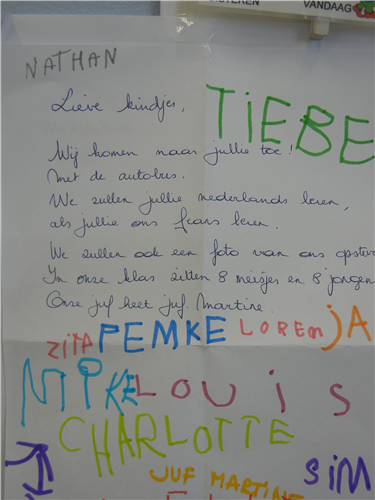 VANDAAG
NATHAN
Lieve kindjes,
TIEBE
Wij komen naar jullie toe!
Met de autobus.
We zullen jullie nederlands leren,
als jullie ons frans leren.
We zullen ook een foto van ons
In onze klas zitten 8 meisjes en 8 jongen
Onze juf heet juf Martine.
ZITA PEMKE LOREN JA
MIKE LOUIS
CHARLOTTE
JUF MARTINE SIM